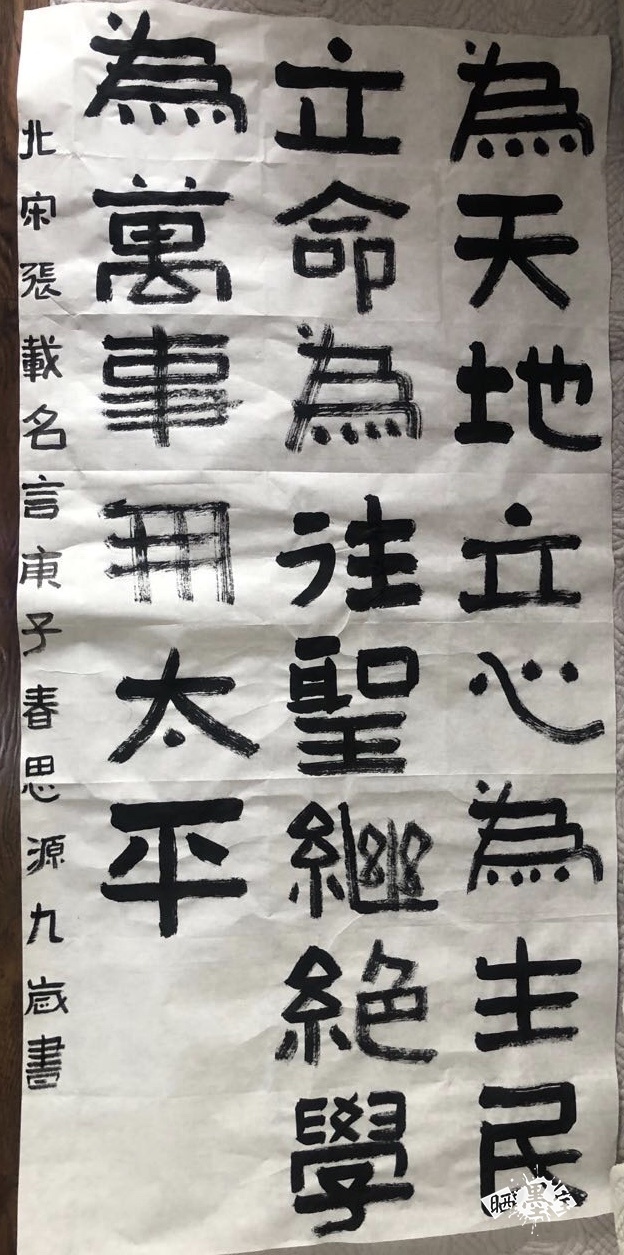 為天地立心為生民
立命為往聖繼絕學
為萬事用太平
北宋張載名言庚子春思源九歲書
晒墨宝